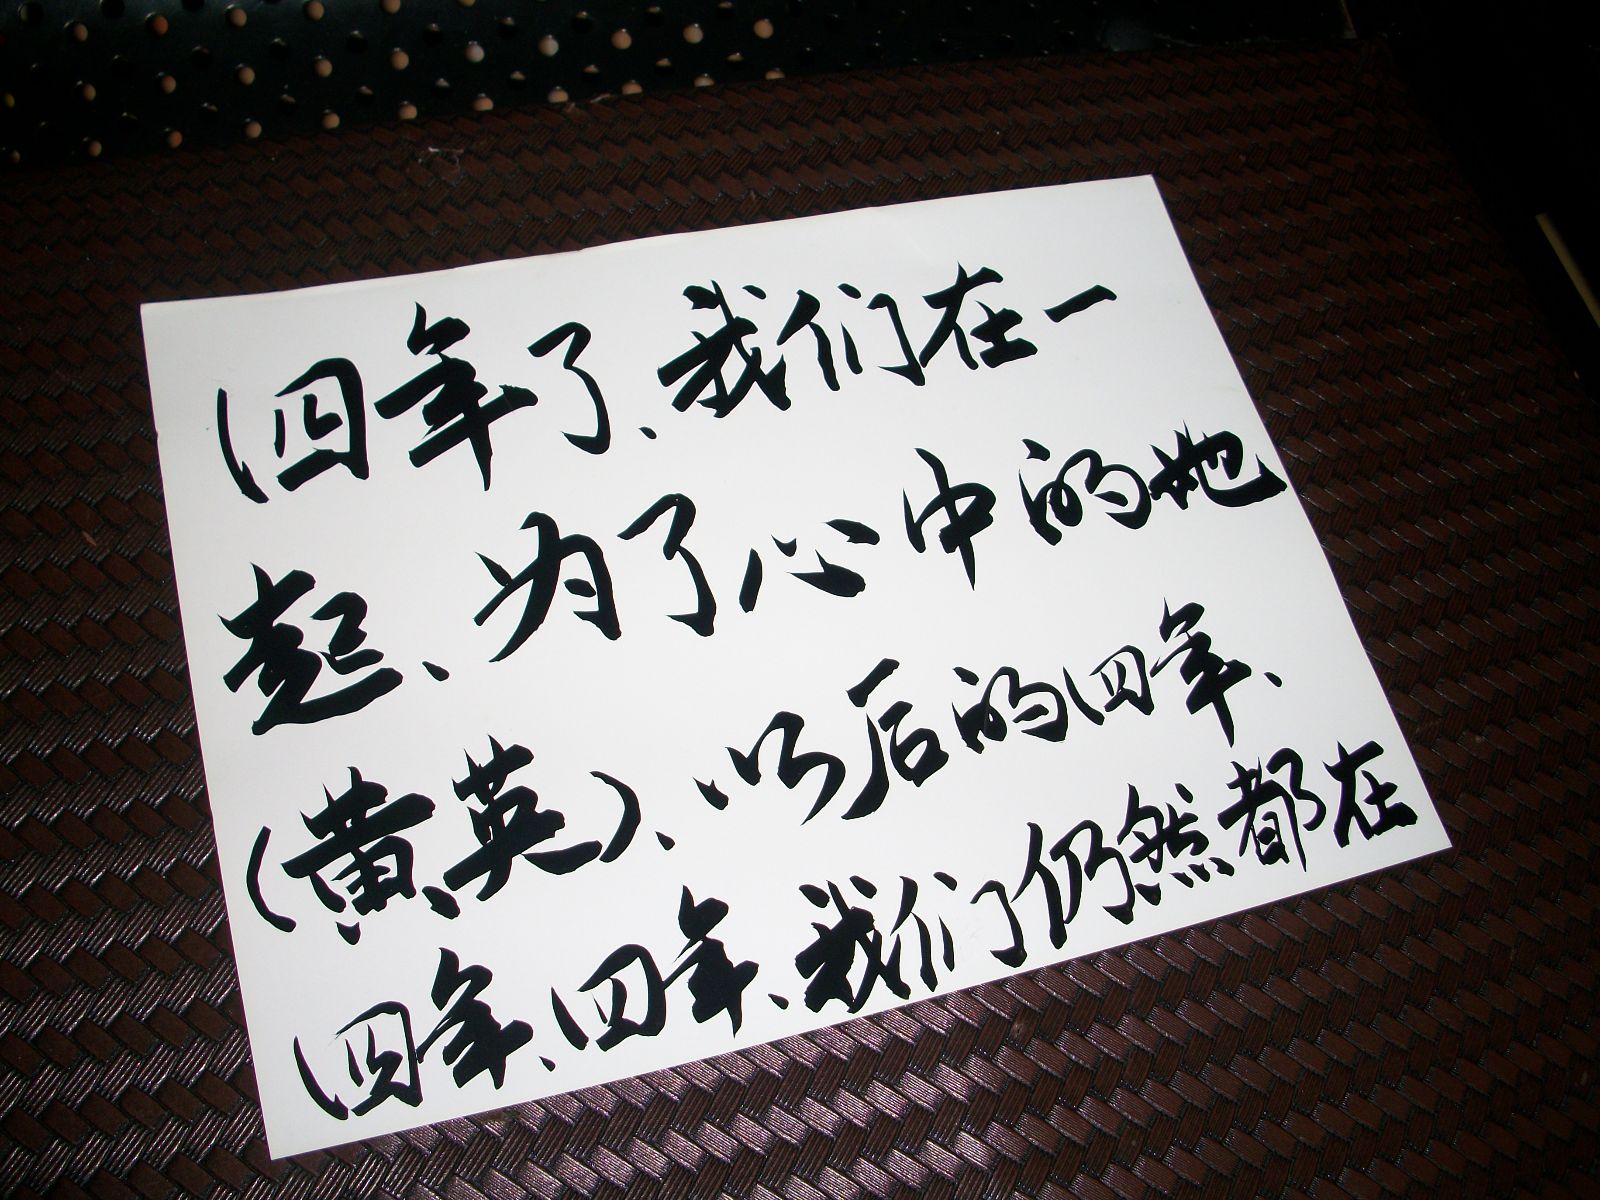 四年了、我们在一
起、为了心中的她
(黄英)、以后的四年、
四年、四年、我们仍然都在